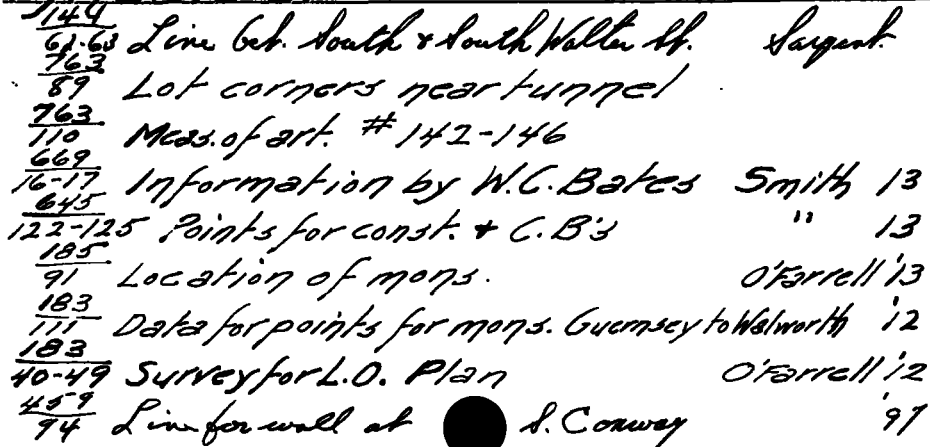 144
62-63 Line bet. South & South Walter St. Sargent
763
89 Lot corners near tunnel
763
110 Meas. of art. # 142-146
669
16-17 Information by W.C. Bates Smith 13
645
122-125 Points for const. & C.B's " 13
185
91 Location of mons. O'Farrell '13
183
111 Data for points for mons. Guernsey to Walworth '12
183
40-49 Survey for L.O. Plan O'Farrell '12
459
94 Line for wall at S. Conway '97